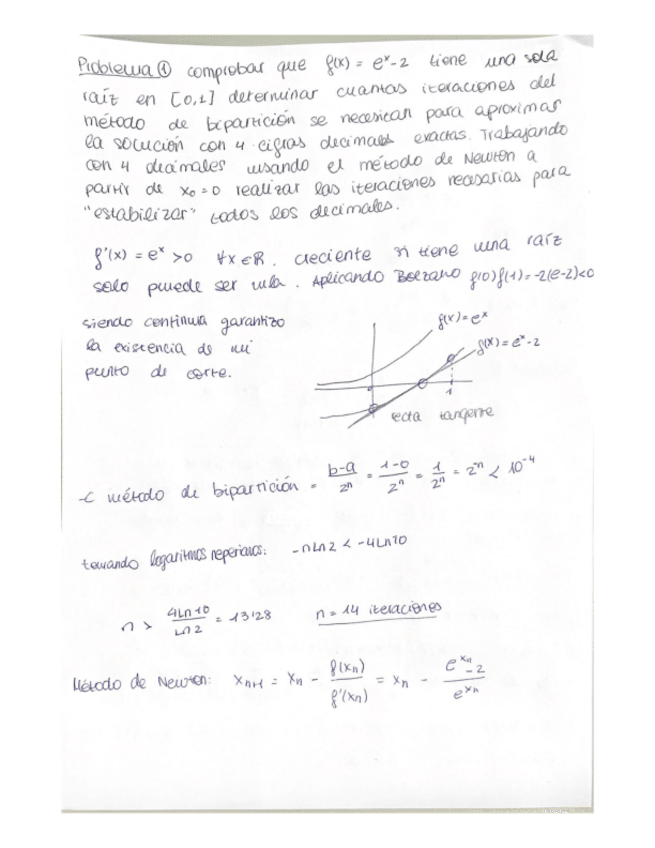 Problema ① comprobar que f(x) = eˣ-2 tiene una sola
raíz en [0,1] determinar cuantas iteraciones del
método de bipartición se necesitan para aproximar
la solución con 4 cifras decimales exactas. Trabajando
con 4 decimales usando el método de Newton a
partir de x₀=0 realizar las iteraciones necesarias para
"estabilizar" todos los decimales.
f'(x) = eˣ >0 ∀x∈ℝ. creciente si tiene una raíz
solo puede ser una. Aplicando Bolzano f(0)f(1)=-2(e-2)<0
siendo continua garantizo
la existencia de mi
punto de corte.
f(x)=eˣ
f(x)=eˣ-2
1
recta tangente
método de bipartición = b-a/2ⁿ = 1-0/2ⁿ = 1/2ⁿ = 2ⁿ < 10⁻⁴
tomando logaritmos neperianos: -nLn2 < -4Ln10
n > 4Ln10/Ln2 = 13'28 n = 14 iteraciones
Método de Newton: xₙ₊₁ = xₙ - f(xₙ)/f'(xₙ) = xₙ - e^xₙ-2/e^xₙ